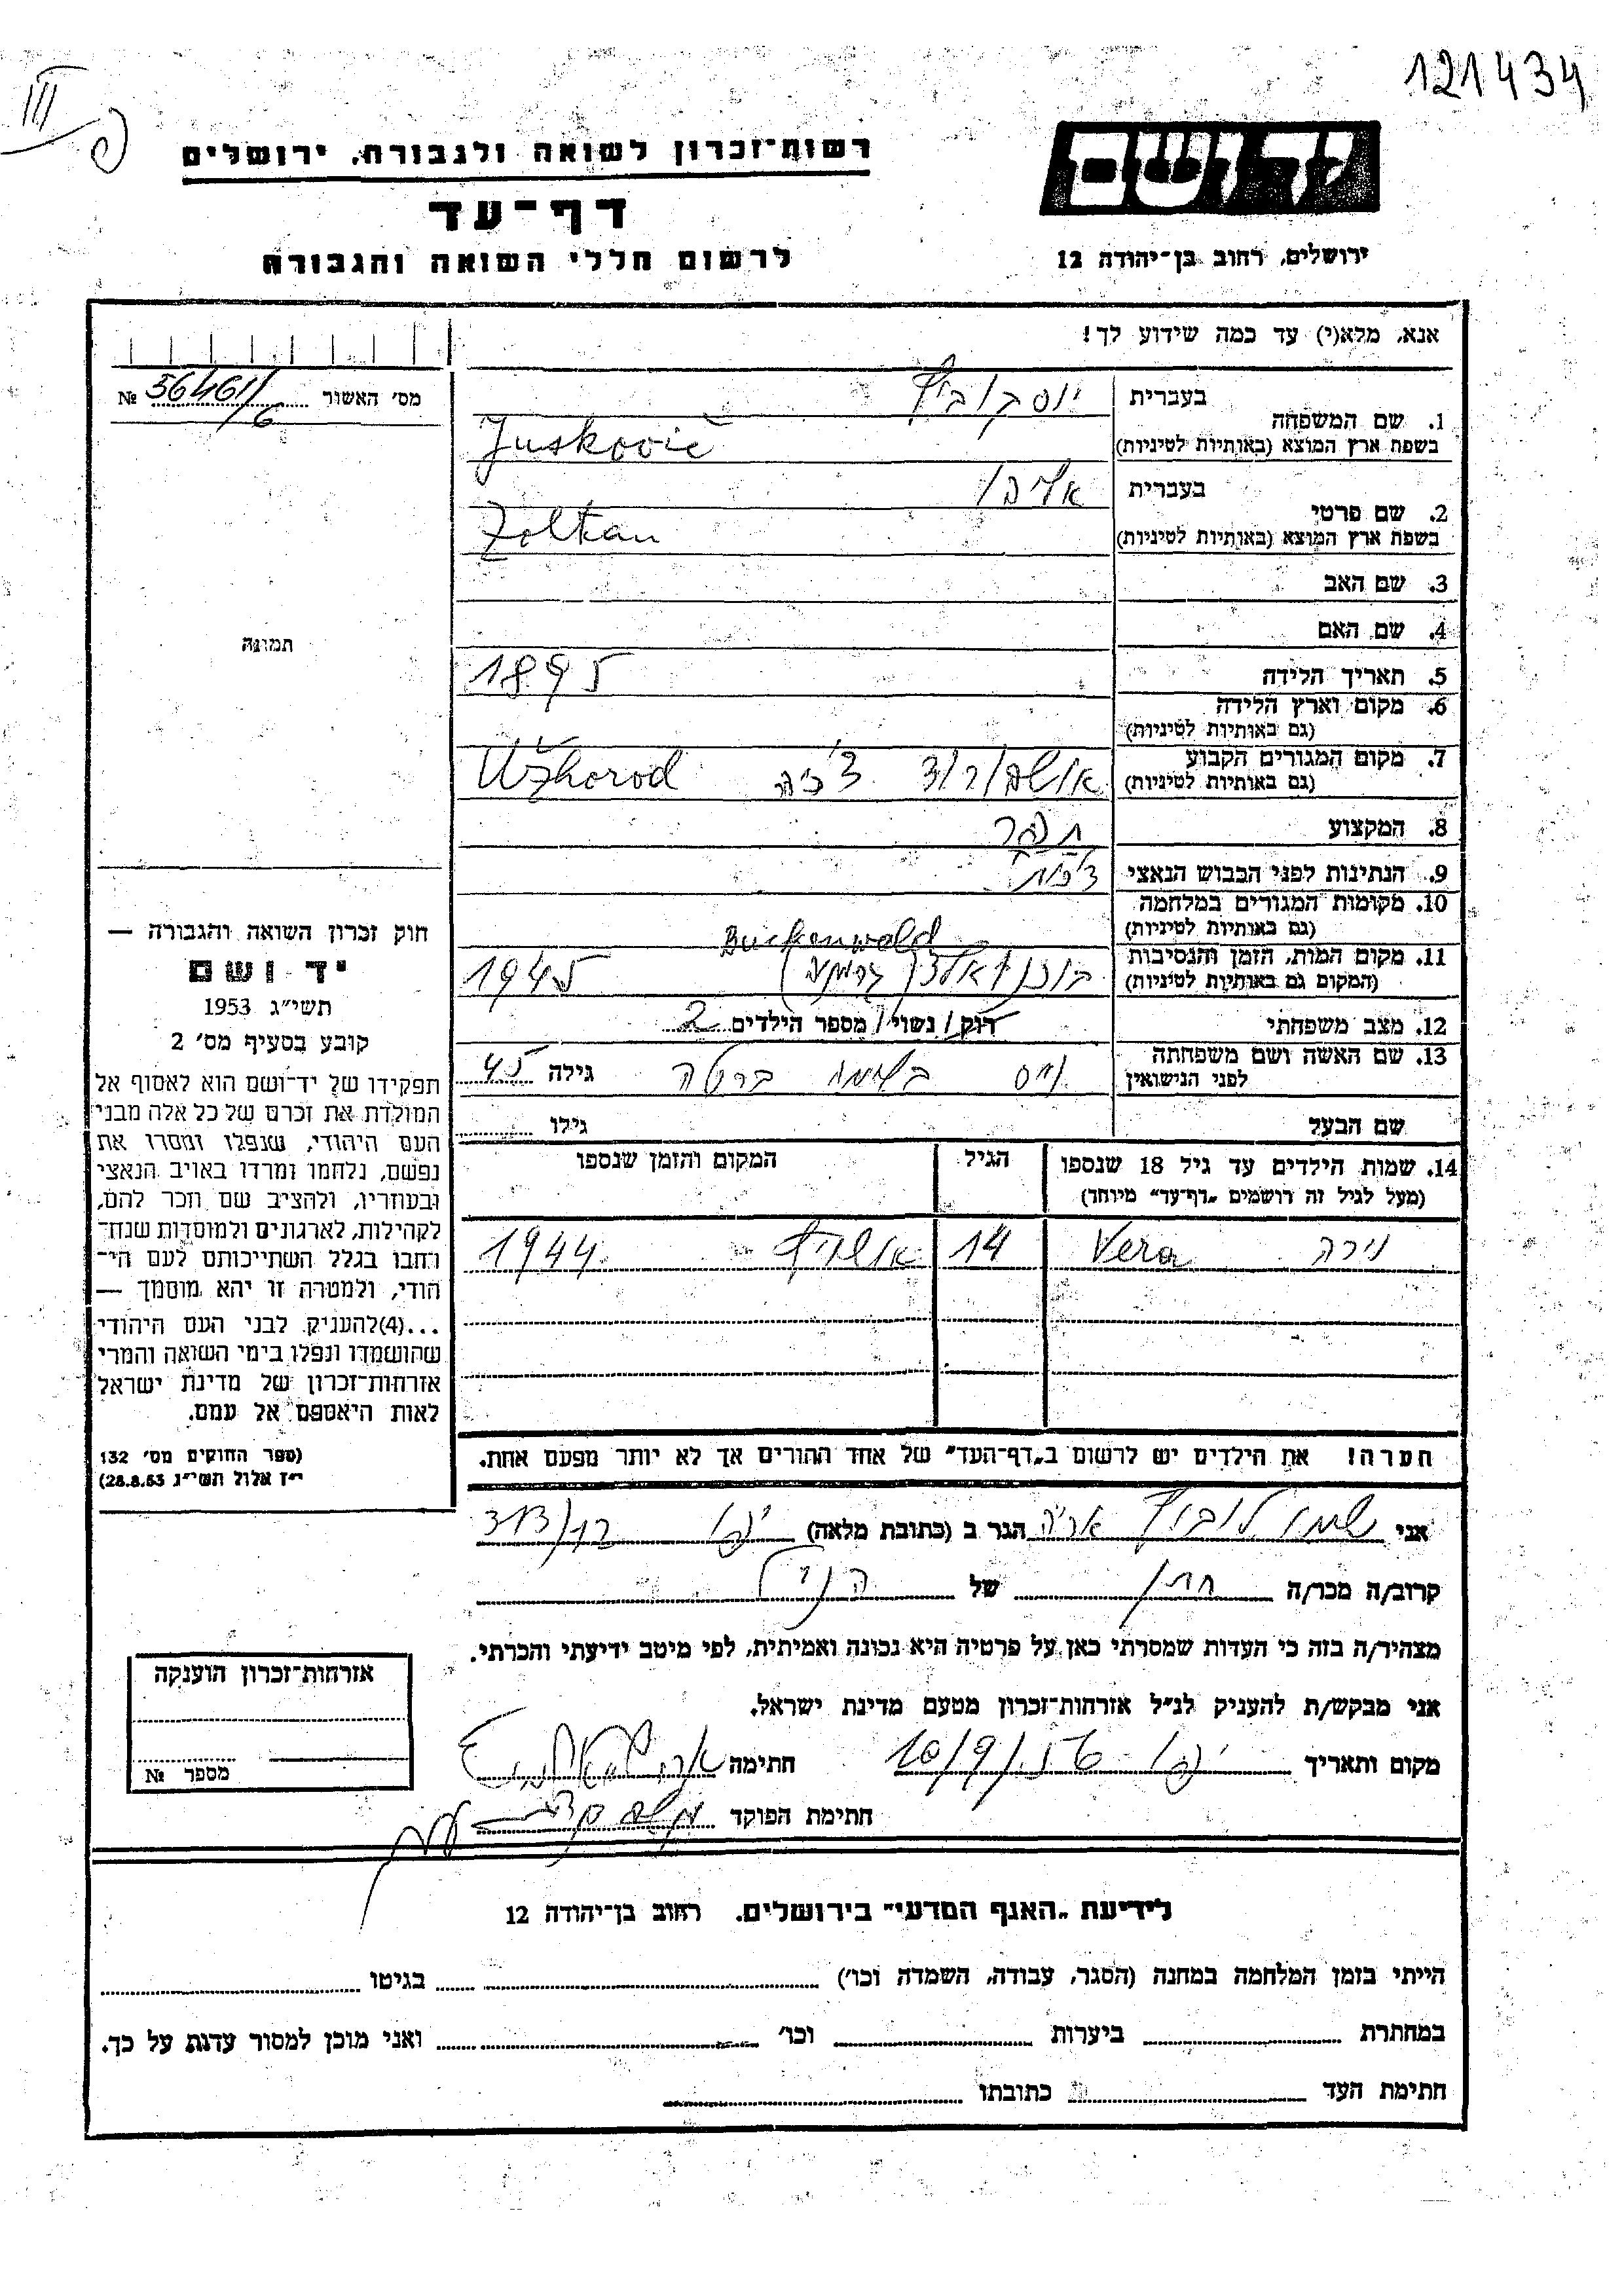 121434
III
רשות־זכרון לשואה ולגבורה, ירושלים
יד ושם
דף־עד
לרשום חללי השואה והגבורה
ירושלים, רחוב בן־יהודה 12
אנא, מלא(י) עד כמה שידוע לך!
מס׳ האשור 56461/6 №
תמונה
חוק זכרון השואה והגבורה —
יד ושם
תשי״ג 1953
קובע בסעיף מס׳ 2
תפקידו של יד־ושם הוא לאסוף אל
המולדת את זכרם של כל אלה מבני
העם היהודי, שנפלו ומסרו את
נפשם, נלחמו ומרדו באויב הנאצי
ובעוזריו, ולהציב שם וזכר להם,
לקהילות, לארגונים ולמוסדות שנח־
רבו בגלל השתייכותם לעם הי־
הודי, ולמטרה זו יהא מוסמך —
...(4)להעניק לבני העם היהודי
שהושמדו ונפלו בימי השואה והמרי
אזרחות־זכרון של מדינת ישראל
לאות היאספם אל עמם.
(ספר החוקים מס׳ 132
י״ז אלול תשי״ג 28.8.53)
1. שם המשפחה בעברית יוסקוביץ
בשפת ארץ המוצא (באותיות לטיניות) Juskovič
2. שם פרטי בעברית
בשפת ארץ המוצא (באותיות לטיניות) Zoltan
3. שם האב
4. שם האם
5. תאריך הלידה 1895
6. מקום וארץ הלידה
(גם באותיות לטיניות)
7. מקום המגורים הקבוע Užhorod
(גם באותיות לטיניות)
8. המקצוע תפר
9. הנתינות לפני הכבוש הנאצי צ׳כית
10. מקומות המגורים במלחמה
(גם באותיות לטיניות)
Buchenwald
11. מקום המות, הזמן והנסיבות בוכנואלד (גרמניה) 1945
(המקום גם באותיות לטיניות)
12. מצב משפחתי רוק/ נשוי/ מספר הילדים 2
13. שם האשה ושם משפחתה ברטה גילה 45
לפני הנישואין
שם הבעל גילו
14. שמות הילדים עד גיל 18 שנספו הגיל המקום והזמן שנספו
(מעל לגיל זה רושמים „דף־עד״ מיוחד)
וירה Vera 14 אושויץ 1944
הערה! את הילדים יש לרשום ב„דף־העד״ של אחד ההורים אך לא יותר מפעם אחת.
אני שמואלוביץ אריה הגר ב (כתובת מלאה) יפו 313/
קרוב/ה מכר/ה חתן של הנ״ל
מצהיר/ה בזה כי העדות שמסרתי כאן על פרטיה היא נכונה ואמיתית, לפי מיטב ידיעתי והכרתי.
אני מבקש/ת להעניק לנ״ל אזרחות־זכרון מטעם מדינת ישראל.
מקום ותאריך יפו 10/9/56 חתימה
חתימת הפוקד
אזרחות־זכרון הוענקה
מספר №
לידיעת „האגף המדעי״ בירושלים, רחוב בן־יהודה 12
הייתי בזמן המלחמה במחנה (הסגר, עבודה, השמדה וכו׳) בגיטו
במחתרת ביערות וכו׳ ואני מוכן למסור עדות על כך.
חתימת העד כתובתו